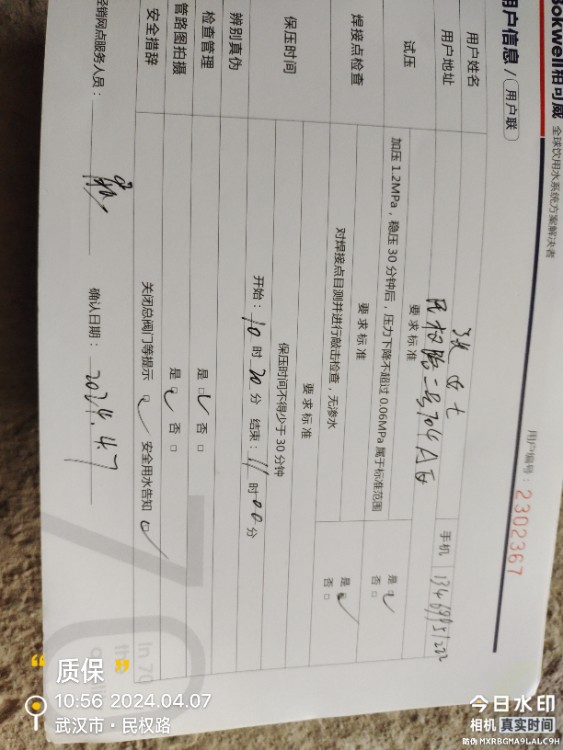 Bokwell柏可威 全球饮用水系统方案解决者
用户信息 / 用户联
用户编号：2302367
用户姓名 张女士
用户地址 民权路二号704A座 手机
要求标准
试压 加压 1.2MPa，稳压 30 分钟后，压力下降不超过 0.06MPa 属于标准范围 是 ✓ 否 □
要求标准
焊接点检查 对焊接点目测并进行敲击检查，无渗水 是 ✓ 否 □
要求标准
保压时间 保压时间不得少于 30 分钟
开始：10 时 20 分 结束：11 时 00 分
辨别真伪
检查管理 是 ✓ 否 □
管路图拍摄 是 ✓ 否 □
安全措辞 关闭总阀门等提示 ✓ 安全用水告知 ✓
经销网点服务人员： 确认日期：2024.4.7
In 70
“质保”
10:56 2024.04.07
武汉市·民权路
今日水印
相机 真实时间
防伪 MXRBGMA9LALC9H